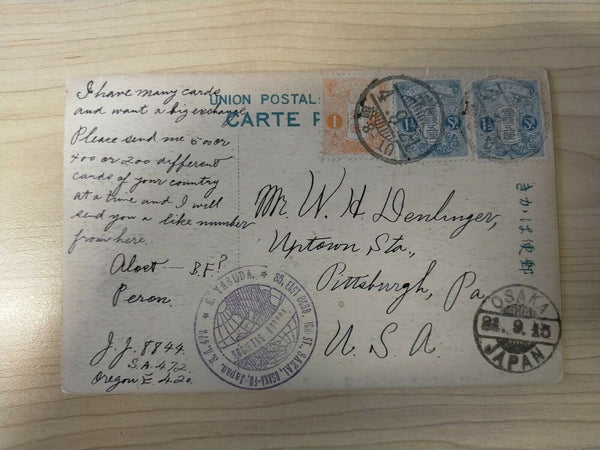 I have many cards
and want a big exchange
Please send me 500 or
400 or 200 different
cards of your country
at a time and I will
send you a like number
from here.
Aloet — B.F.?
Peron.
J.J. 8844
S.A. 472
Oregon E 420.
UNION POSTAL
CARTE P
1
1½
1½
Mr. W. H. Denlinger,
Uptown Sta.,
Pittsburgh, Pa.
U. S. A.
きかは便郵
K. YASUDA.
35, EAST 3CHO, 
ST., SAKAI, OSAKA-FU, Japan. S.A. 472
OSAKA
21.9.15
JAPAN